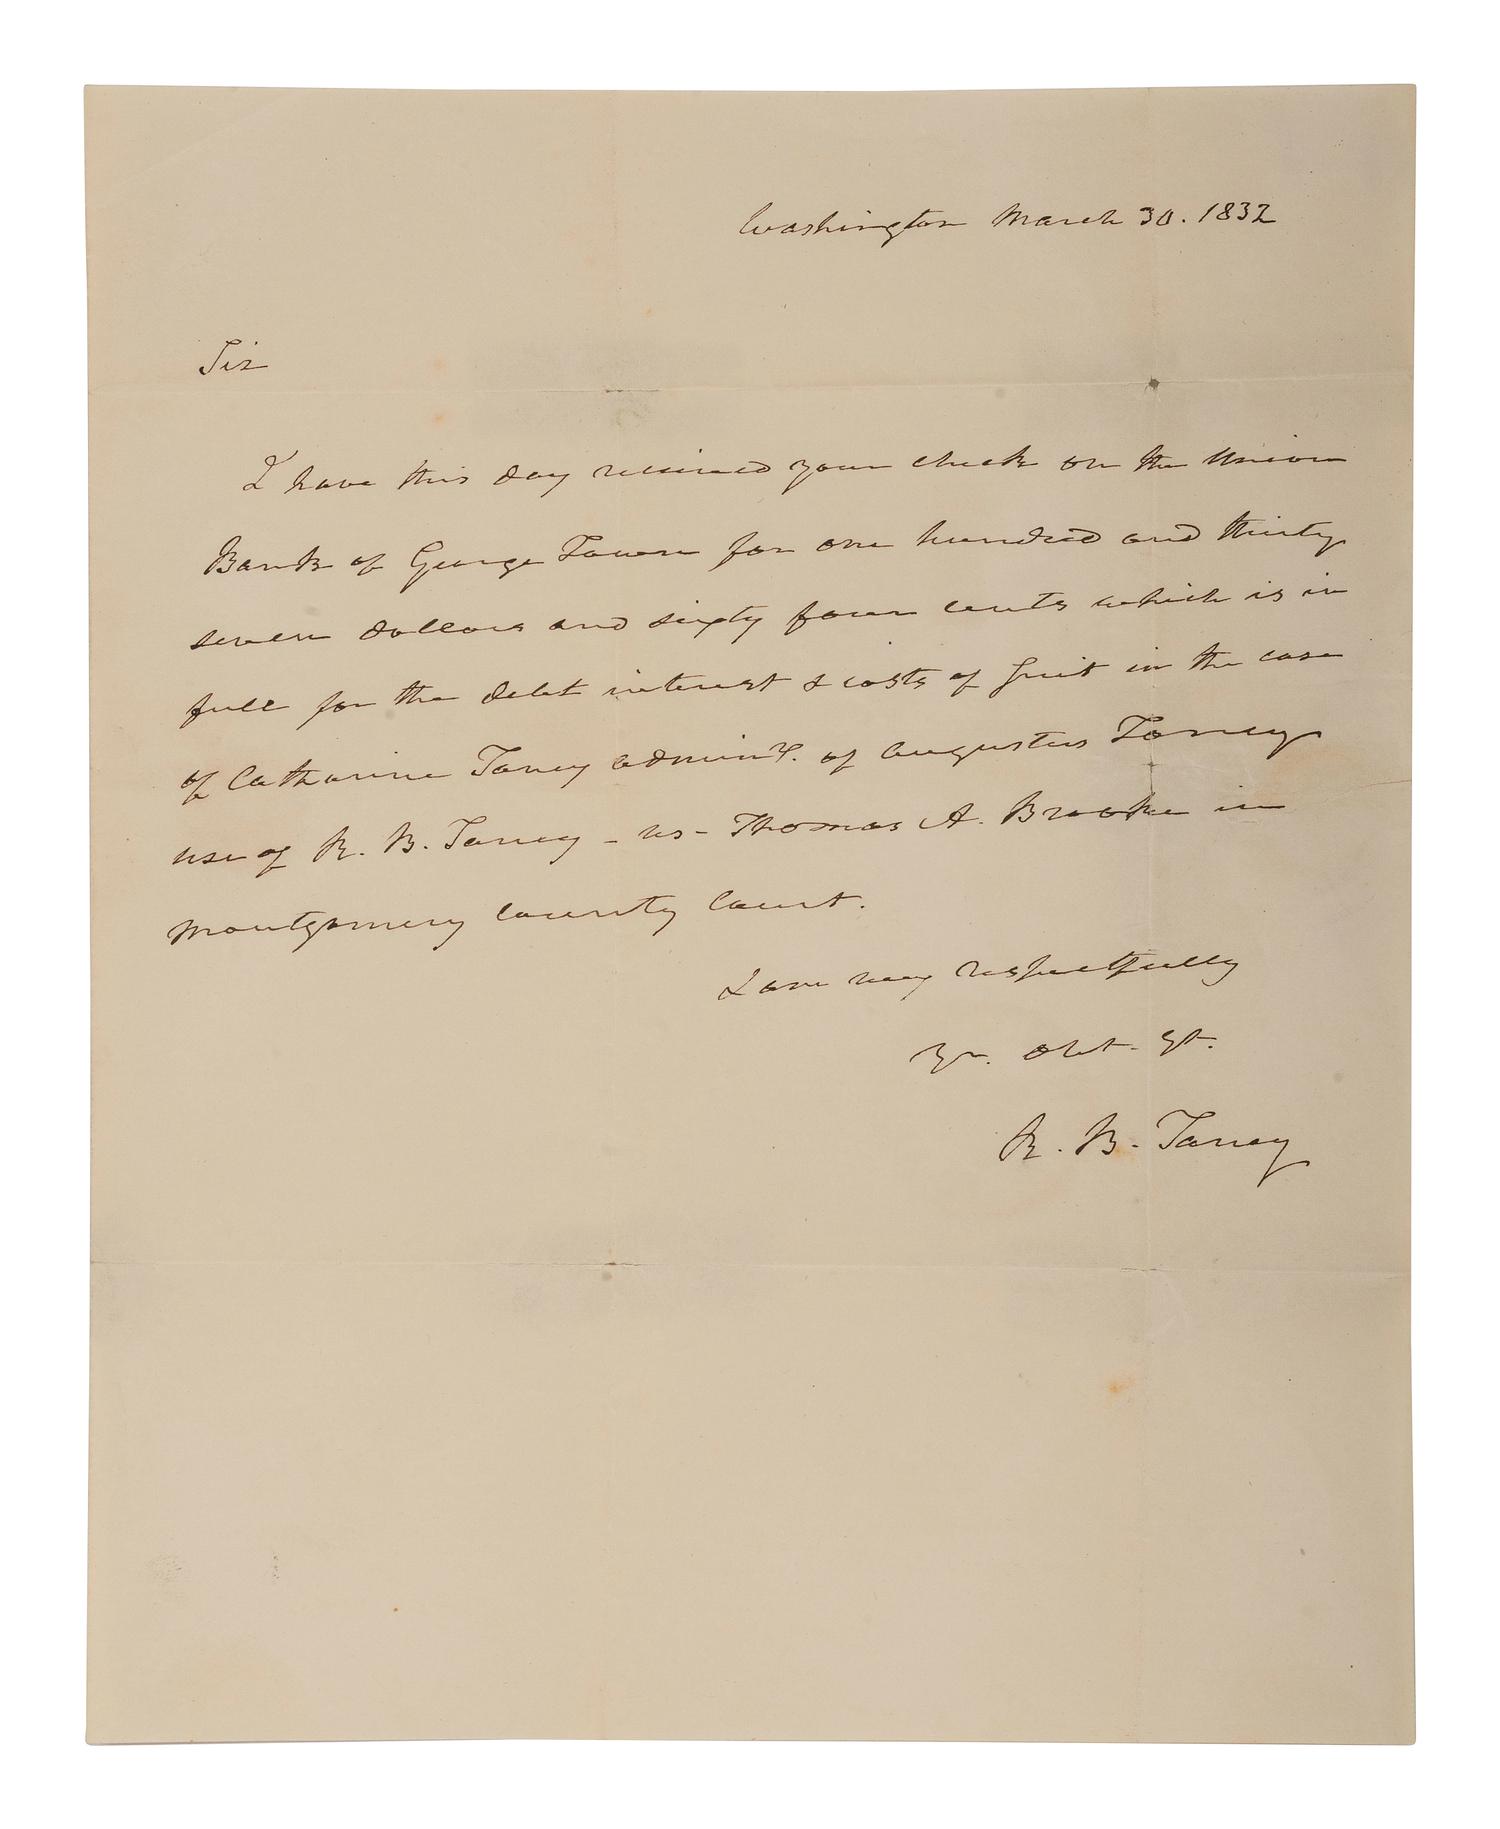 Washington March 30. 1832
Sir
I have this day received your check on the Union
Bank of George Town for one hundred and thirty
seven dollars and sixty four cents which is in
full for the debt interest & costs of suit in the case
of Catharine Taney adminx. of Augustus Taney
use of R. B. Taney - vs - Thomas A. Brooke in
Montgomery County Court.
I am very respectfully
Yr. obt. st.
R. B. Taney